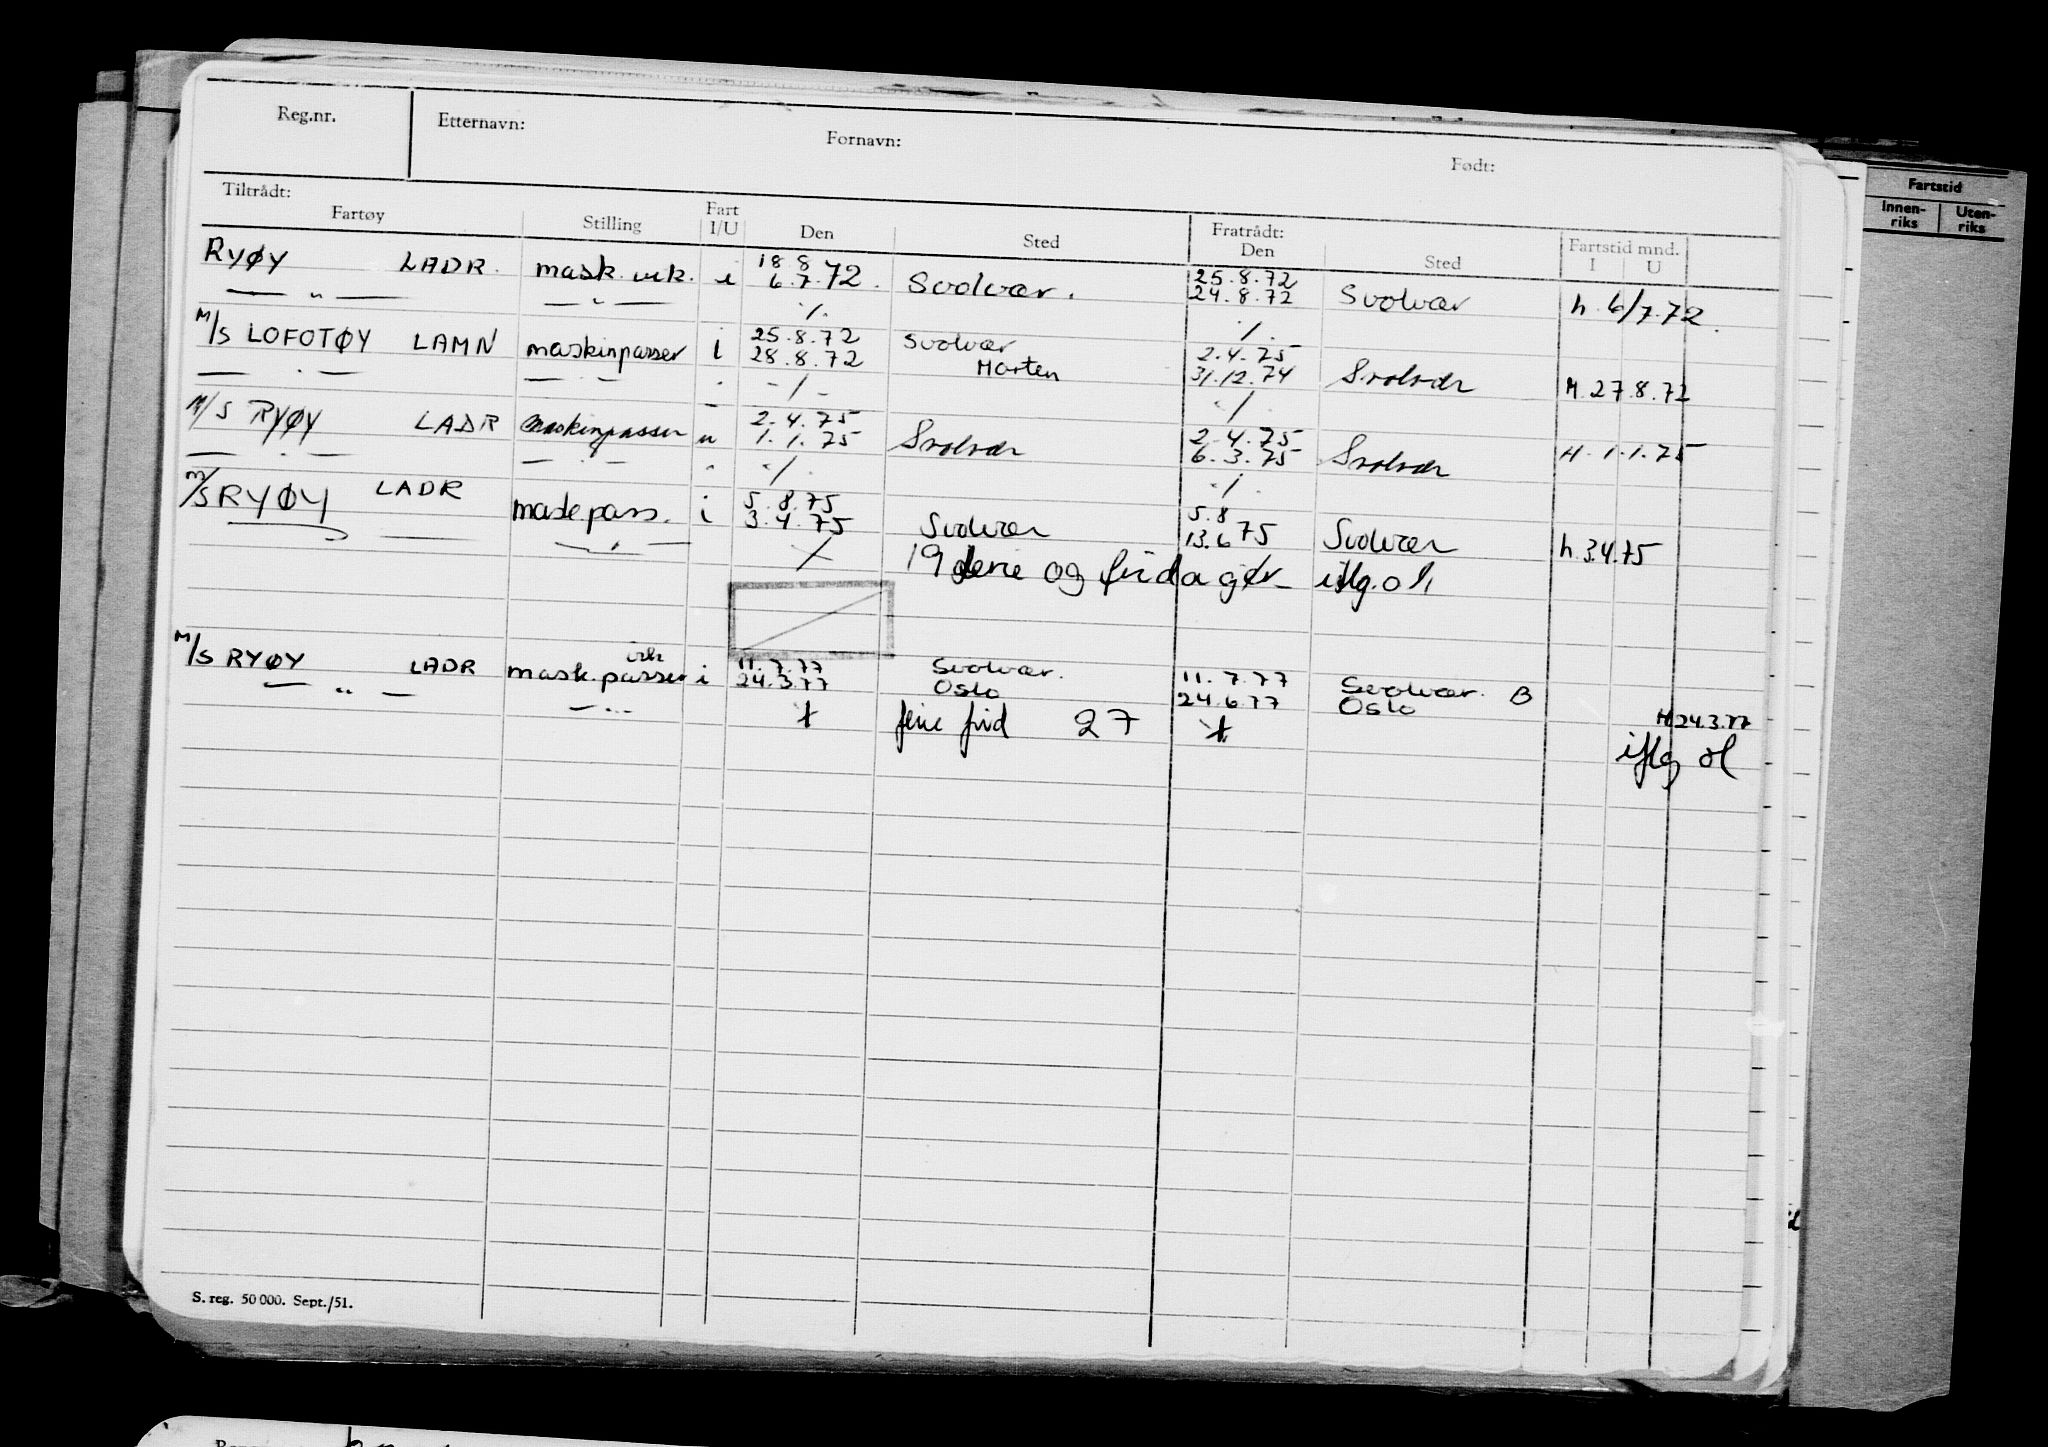 Reg.nr. Etternavn: Fornavn: Født:
Tiltrådt: Fratrådt:
Fartøy Stilling Fart I/U Den Sted Den Sted Fartstid mnd. I U
Fartstid
Innen-riks Uten-riks
RYØY LADR. mask. vik. i 18 8 72 25.8.72
— " — — " — 6.7.72. Svolvær. 24.8.72 Svolvær h. 6/7.72.
./. ./.
M/S LOFOTØY LAMN maskinpasser i 25.8.72 Svolvær 2.4.75
— . — — . — . 28.8.72 Morten 31.12.74 Svolvær M. 27.8.72
-/- ./.
M/S RYØY LADR maskinpasser u 2.4.75 2.4.75
— . — — . — . 1.1.75 Svolvær 6.3.75 Svolvær H. 1.1.75
./. ./.
M/S RYØY LADR mask.pass. i 5.8.75 5.8
— — . — 3.4.75 Svolvær 13.6 75 Svolvær h. 3.4.75
/ 19 ferie og fridager iflg. ol
M/S RYØY LADR mask.passer vik i 11.7.77 Svolvær. 11.7.77 Svolvær. B
— " — — " — 24.3.77 Oslo 24.6.77 Oslo M 24.3.77
ferie frid 27 iflg ol
S. reg. 50 000. Sept./51.